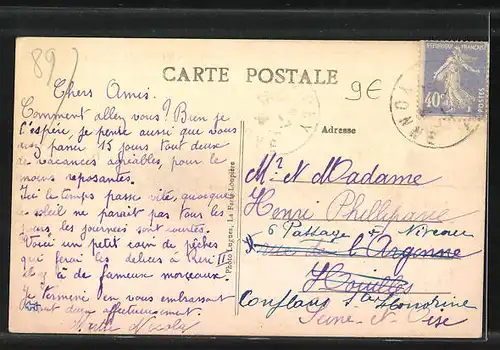 89)
CARTE POSTALE
9€
REPUBLIQUE FRANÇAISE
40c
POSTES
YONNE
Adresse
Chers Amis.
Comment allez vous? Bien je
l'espère, je pense aussi que vous
passer 15 jours tout deux
de vacances agréables, pour le
moins reposantes.
Ici le temps passe vite, quoique
le soleil ne paraît pas tous les
jours, les journées sont courtes.
Voici un petit coin de pêches
qui ferai les délices à
il y à de fameux morceaux.
Je termine en vous embrassant
tout deux affectueusement.
Photo Lugnes, La Ferté-Loupière
Mr et Madame
Henri Phelippasse
6 Passage
Rue de l'Argonne
Houilles
Conflans Ste Honorine
Seine-et-Oise